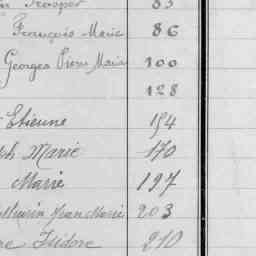 Prosper 83
François Marie 86
Georges Pierre Marie 100
128
Etienne 154
ph Marie 170
Marie 197
Mathurin Jean Marie 203
re Isidore 210